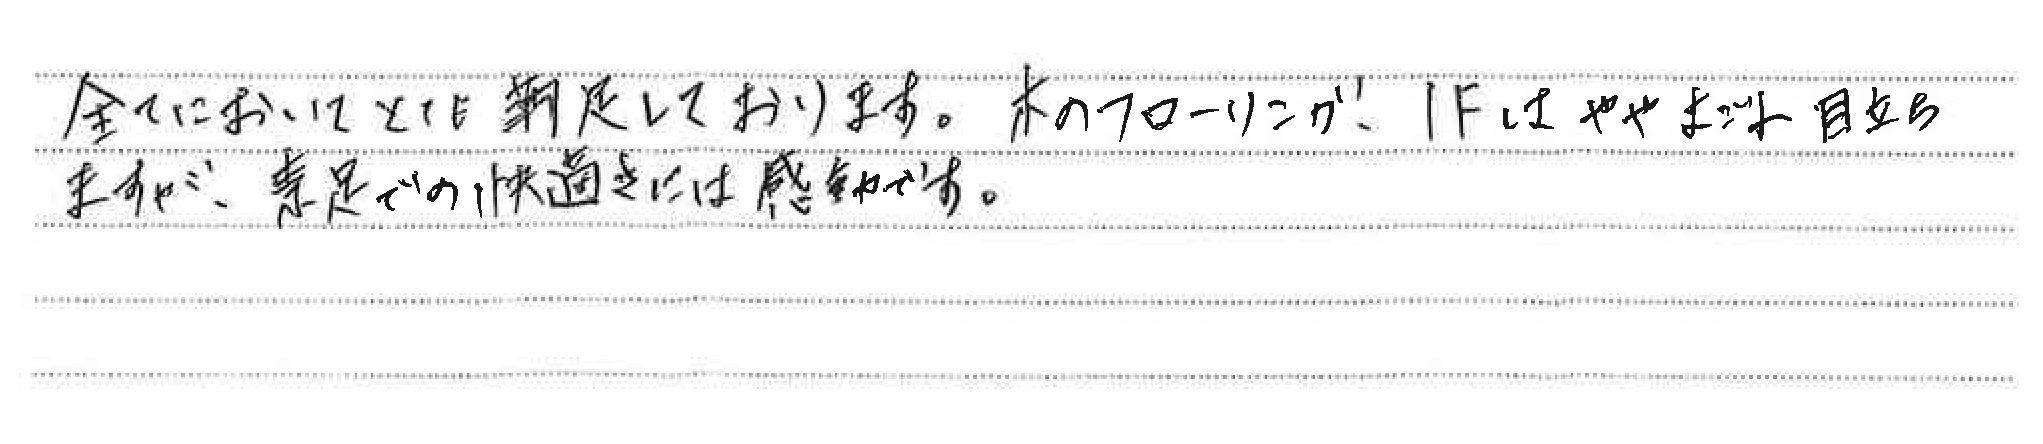 全てにおいてとても満足しております。木のフローリングが、1Fはやや  目立ち
ますが、素足での快適さには感動です。